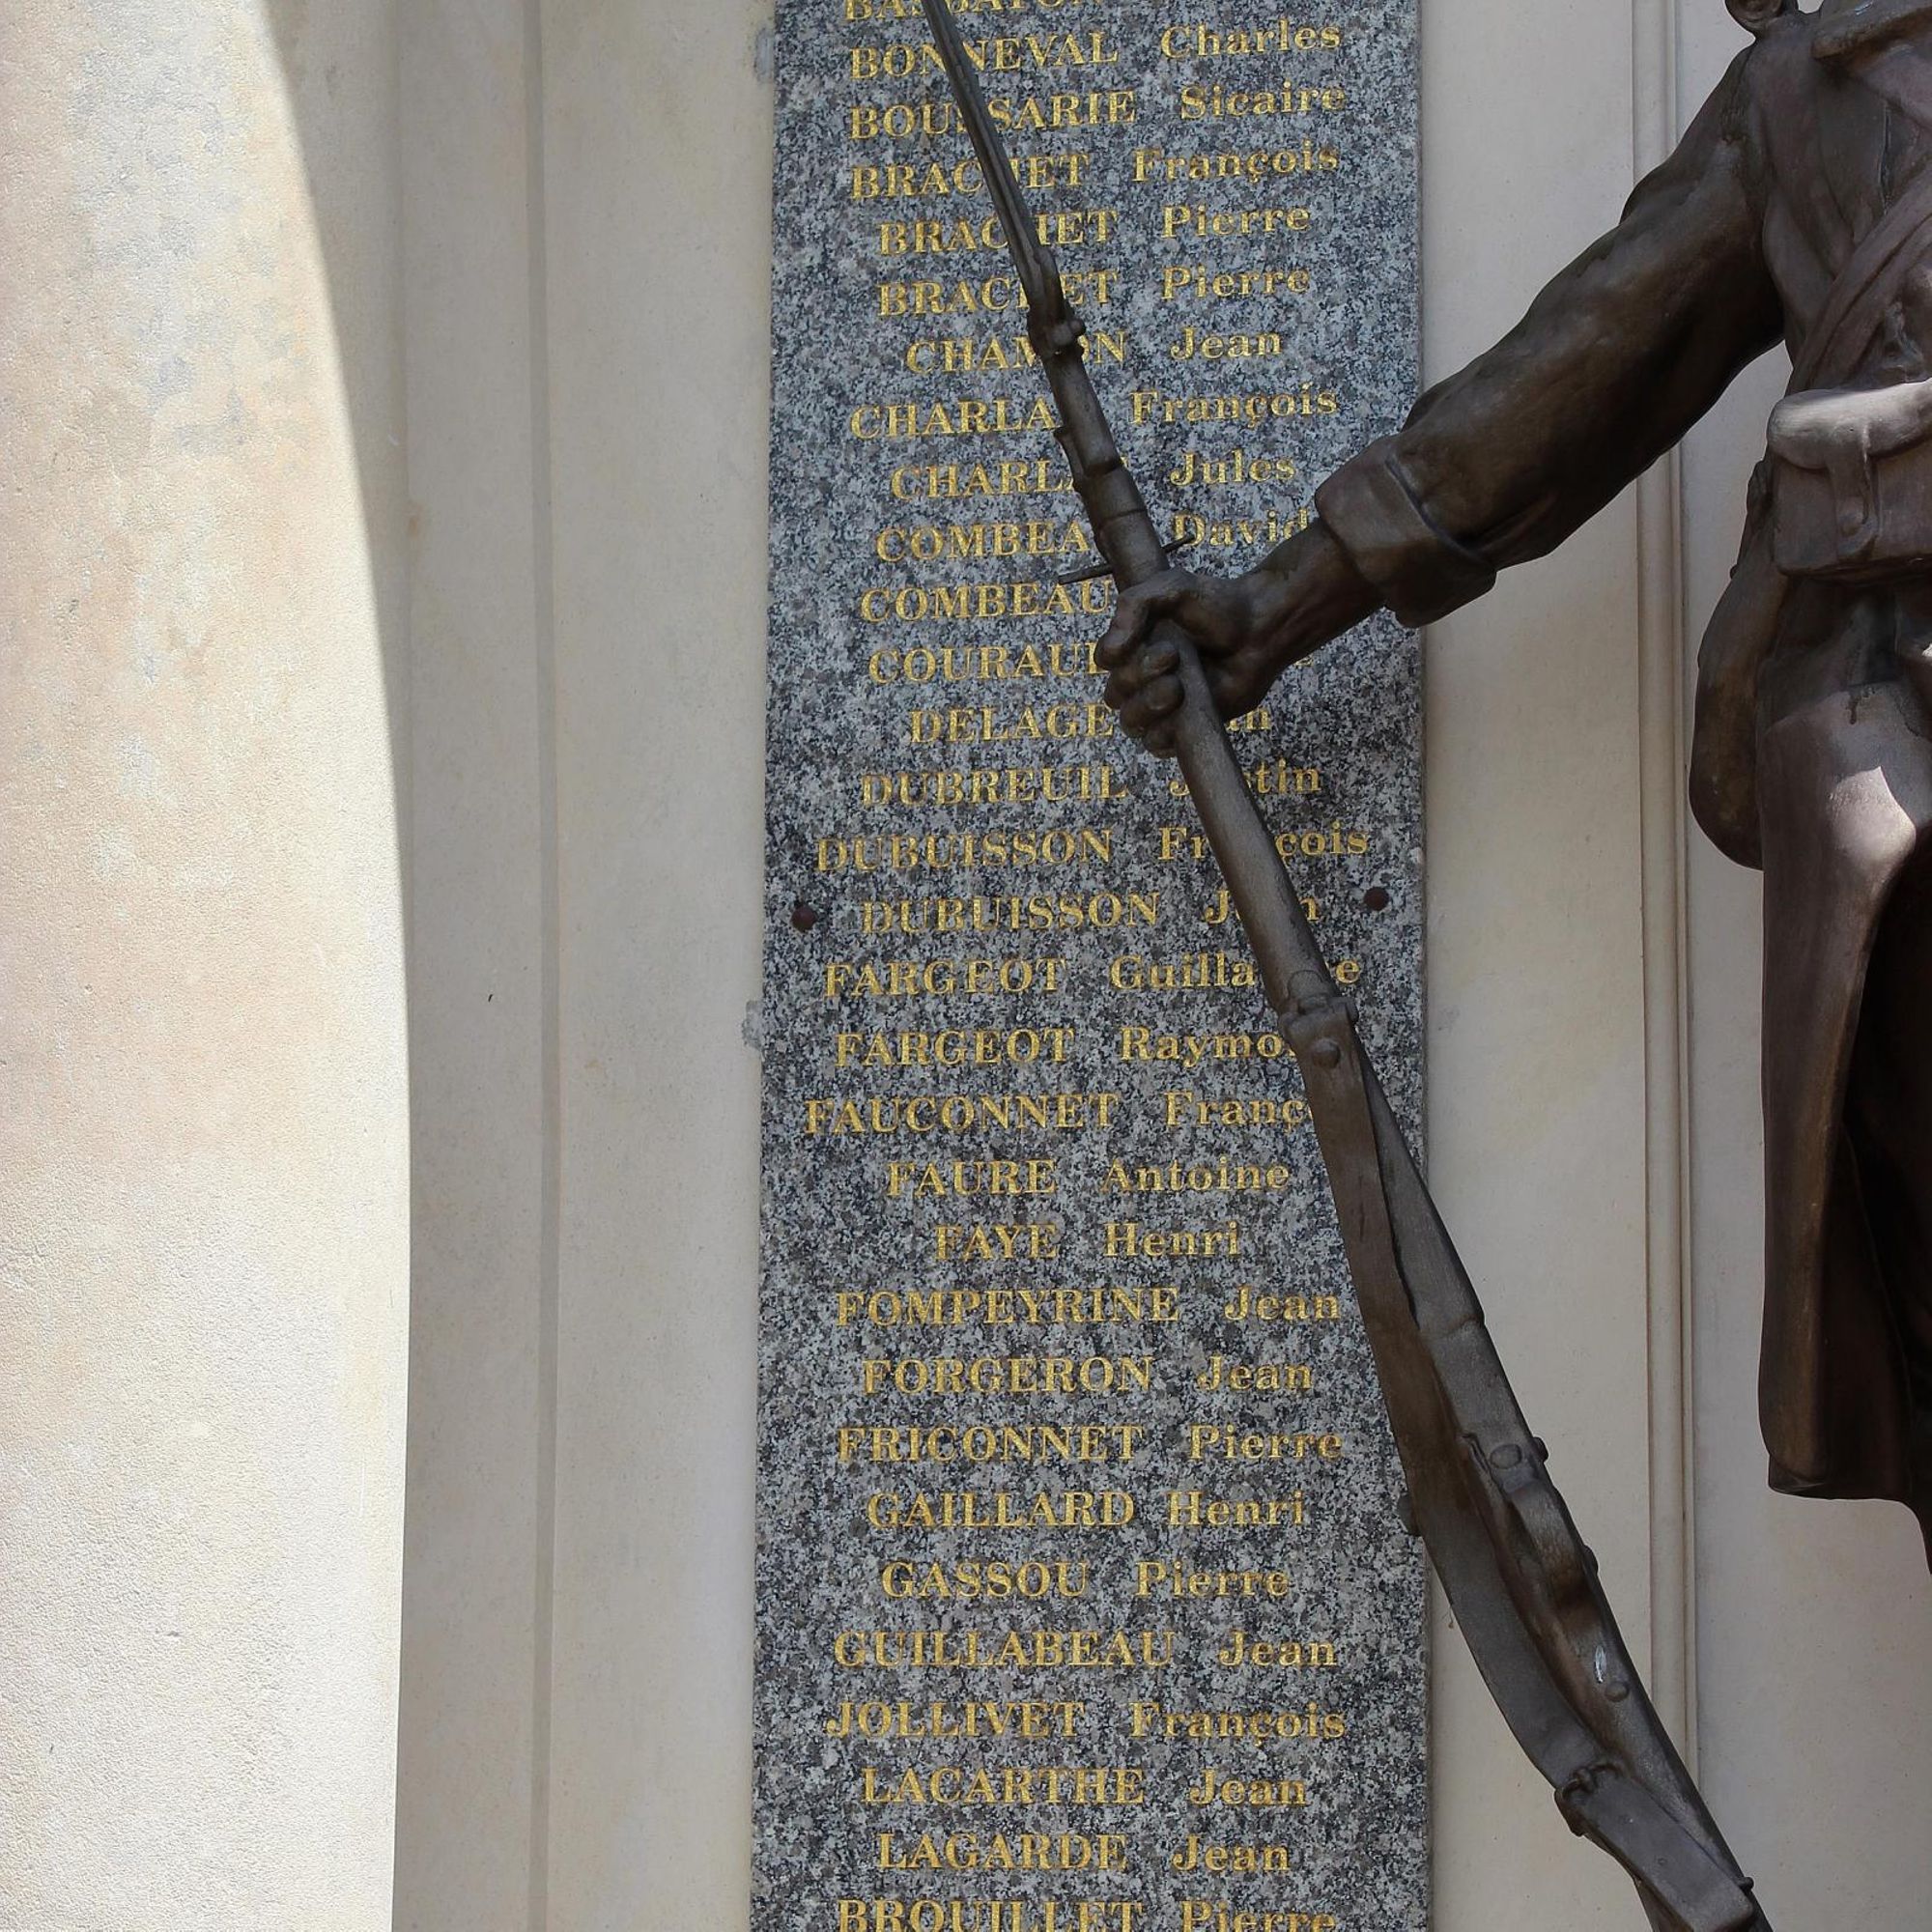 BONNEVAL Charles
BOUSSARIE Sicaire
BRACHET François
BRACHET Pierre
BRACHET Pierre
Jean
François
Jules
David
COMBEAU
DELAGE
DUBREUIL Justin
DUBUISSON François
DUBUISSON Jean
FARGEOT Guillaume
FARGEOT Raymond
FAUCONNET
FAURE Antoine
FAYE Henri
FOMPEYRINE Jean
FORGERON Jean
FRICONNET Pierre
GAILLARD Henri
GASSOU Pierre
GUILLABEAU Jean
JOLLIVET François
LACARTHE Jean
LAGARDE Jean
BROUILLET Pierre